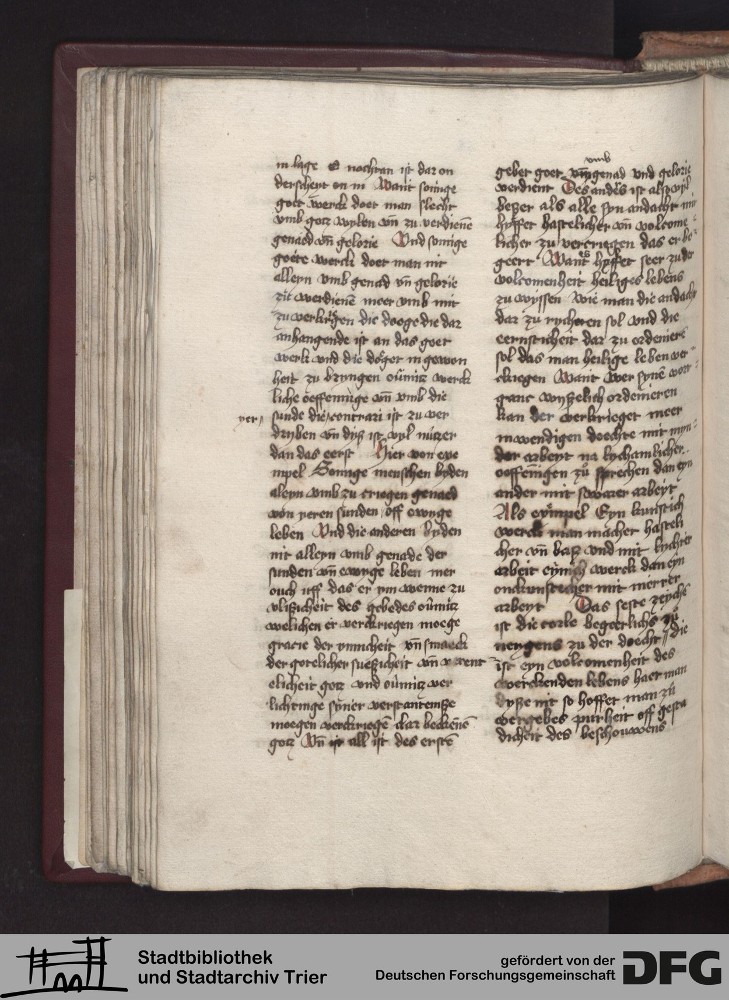 in lage es nochtan ist dar on
derscheyt en in Want somige
goet werck doet man slecht
vmb gotz wylen vn̄ zu verdiene
genaed vn̄ gelorie Vnd somige
goete werck doet man nit
alleyn vmb genad vn̄ gelorie
zu verdienē meer vmb mit
zu verkrigen die dooge die dar
anhangende ist an das goet
werk vnd die doget in gewon
heit zu bryngen ouīmitz werck
liche oeffeninge vn̄ vmb die
sunde die contrari ist zu ver
yer
dryben vn̄ dyß ist vyl nützer
dan das eerst Hier von exe
mpel Somige menschen byden
aleyn vmb zu criegen genaed
von yeren sunden off ewyge
leben Vnd die anderen byden
nit alleyn vmb genade der
sunden vn̄ ewige leben mer
ouch uff das er ym wenne zu
vlißicheit des gebedes ouīmitz
welichen er verkriegen moege
gracie der ynnicheit vn̄ smaeck
der gotelicher sueßicheit vn̄
elicheit gotz vnd ouīmitz ver
lichtinge syner verstantenisse
moegen verkriegē clar bekenē
gotz Vn̄ all ist des erstē
vmb
geber goet genad vnd gelorie
verdient Des anders ist also vyl
beßer als alle syn andacht
hylffet hastelicher vn̄ volcome
licher zu vercriegen das er be
geert Want es hylffet seer zu der
volcomenheit heiliges lebens
zu wyssen wie man die andacht
dar zu rychten sol vnd die
eernsticheit dar zu ordenieren
sol das man heilige leben ver
criegen Want wer synē voert
ganc wyßelich ordenieren
kan der verkrieget meer
inwendigen doechte mit myn
der arbeyt na lychamlicher
oeffenigen zu sprechen dan eyn
ander mit swarer arbeyt
Als exympel Eyn kunstich
werck man macher hasteli
cher vn̄ baß vnd mit lychter
arbeit eynich werck dan eyn
onckunstecher mit merrer
arbeyt Das seste zeychē
ist die corle begerlichs zu
neygens zu der doecht die
ist eyn volcomenheit des
werckenden lebens haet man
dysse nit so hoffet man zu
vergebes purheit off gesta
dicheit des beschouwens
Stadtbibliothek
und Stadtarchiv Trier
gefördert von der
Deutschen Forschungsgemeinschaft
DFG